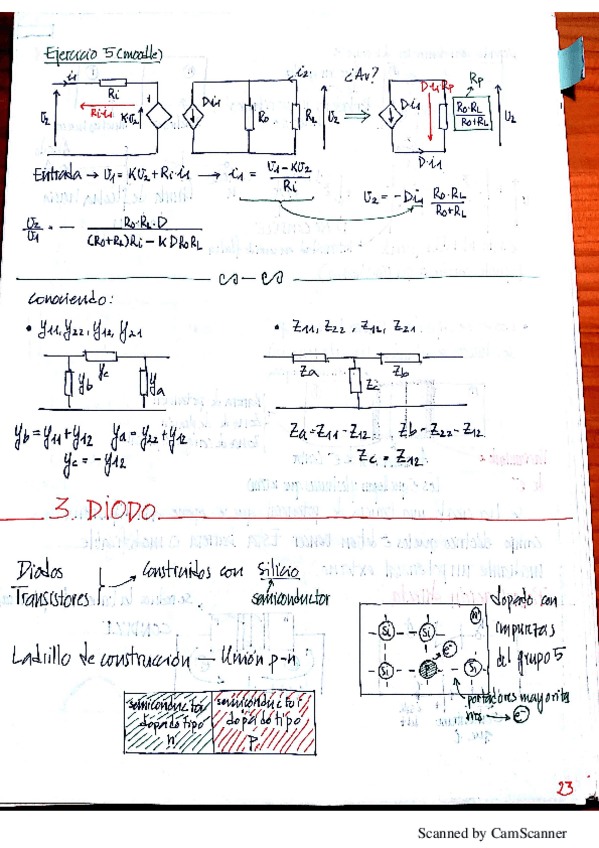 Ejercicio 5 (moodle)
i1 Ri Ri·i1 Kv2 Di1 Ro RL i2 v2 ¿Av? ⇒ Di1 Di1·Rp Rp Ro·RL/Ro+RL v2
D·i1
Entrada → v1 = Kv2 + Ri·i1 → i1 = (v1 - Kv2)/Ri
v2 = -Di1 Ro·RL/(Ro+RL)
v2/v1 = - Ro·RL·D/((Ro+RL)Ri - KDRoRL)
Conociendo:
• y11, y22, y12, y21
• Z11, Z22, Z12, Z21
yc yb ya
Za Zb Zc
yb = y11 + y12 ya = y22 + y12
yc = -y12
Za = Z11 - Z12 Zb = Z22 - Z12
Zc = Z12
3. DIODO
Diodos
Transistores
→ Construidos con Silicio
semiconductor
Ladrillo de construcción — Unión p-n
semiconductor
dopado tipo
n
semiconductor
dopado tipo
p
Si Si e- Si P Si
dopado con
impurezas
del grupo 5
portadores mayorita
rios → e-
23
Scanned by CamScanner